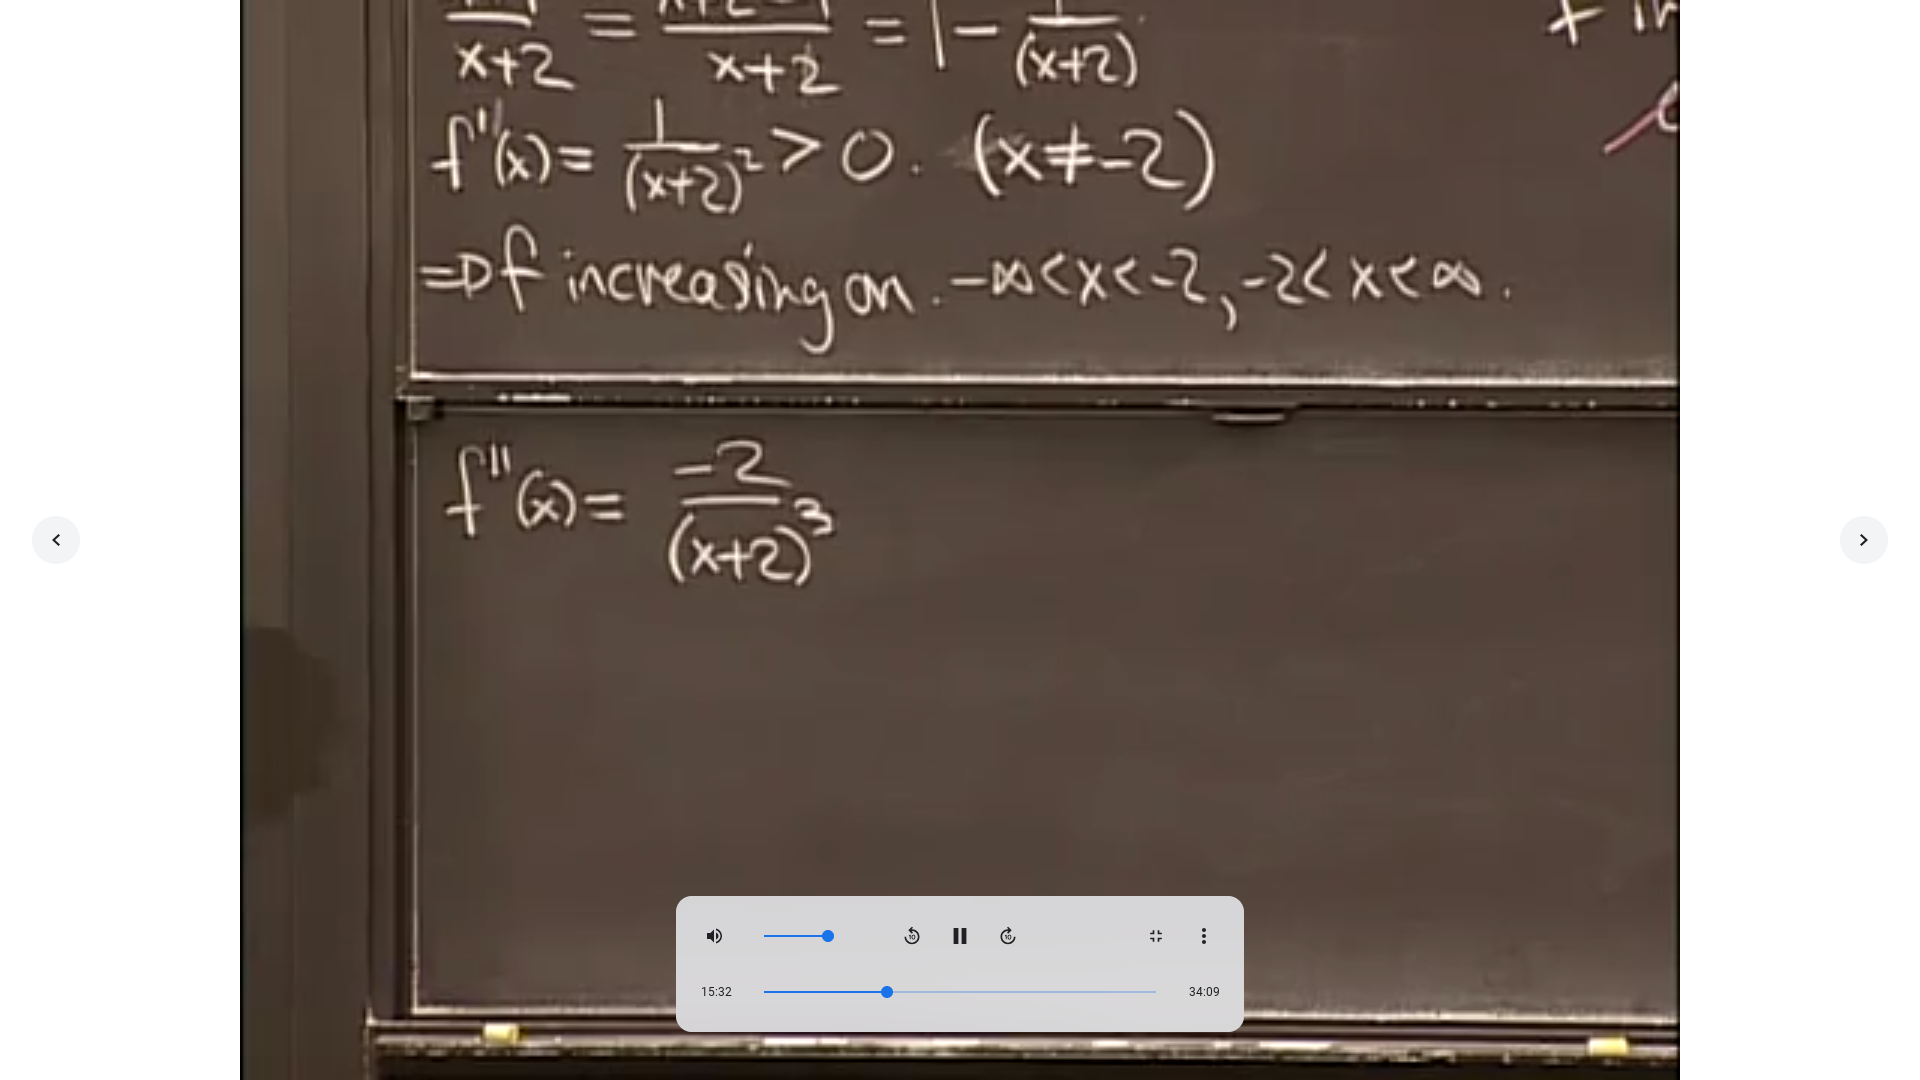 x+2 = x+2 = 1 - 1/(x+2)
f'(x) = 1/(x+2)² > 0. (x≠-2)
=> f increasing on. -∞<x<-2, -2<x<∞.
f''(x) = -2/(x+2)³
15:32 34:09